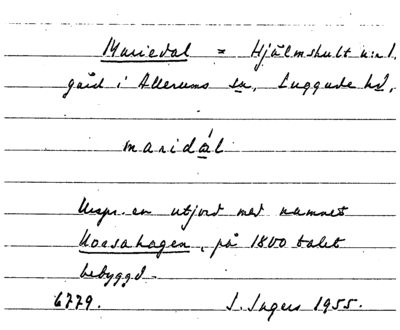 Mariedal = Hjälmshult n:r 1.
gård i Allerums sn, Luggude hd,
maridál
Urspr. en utjord med namnet
Korsahagen, på 1800 talet
bebyggd.
6779. I. Ingers 1955.